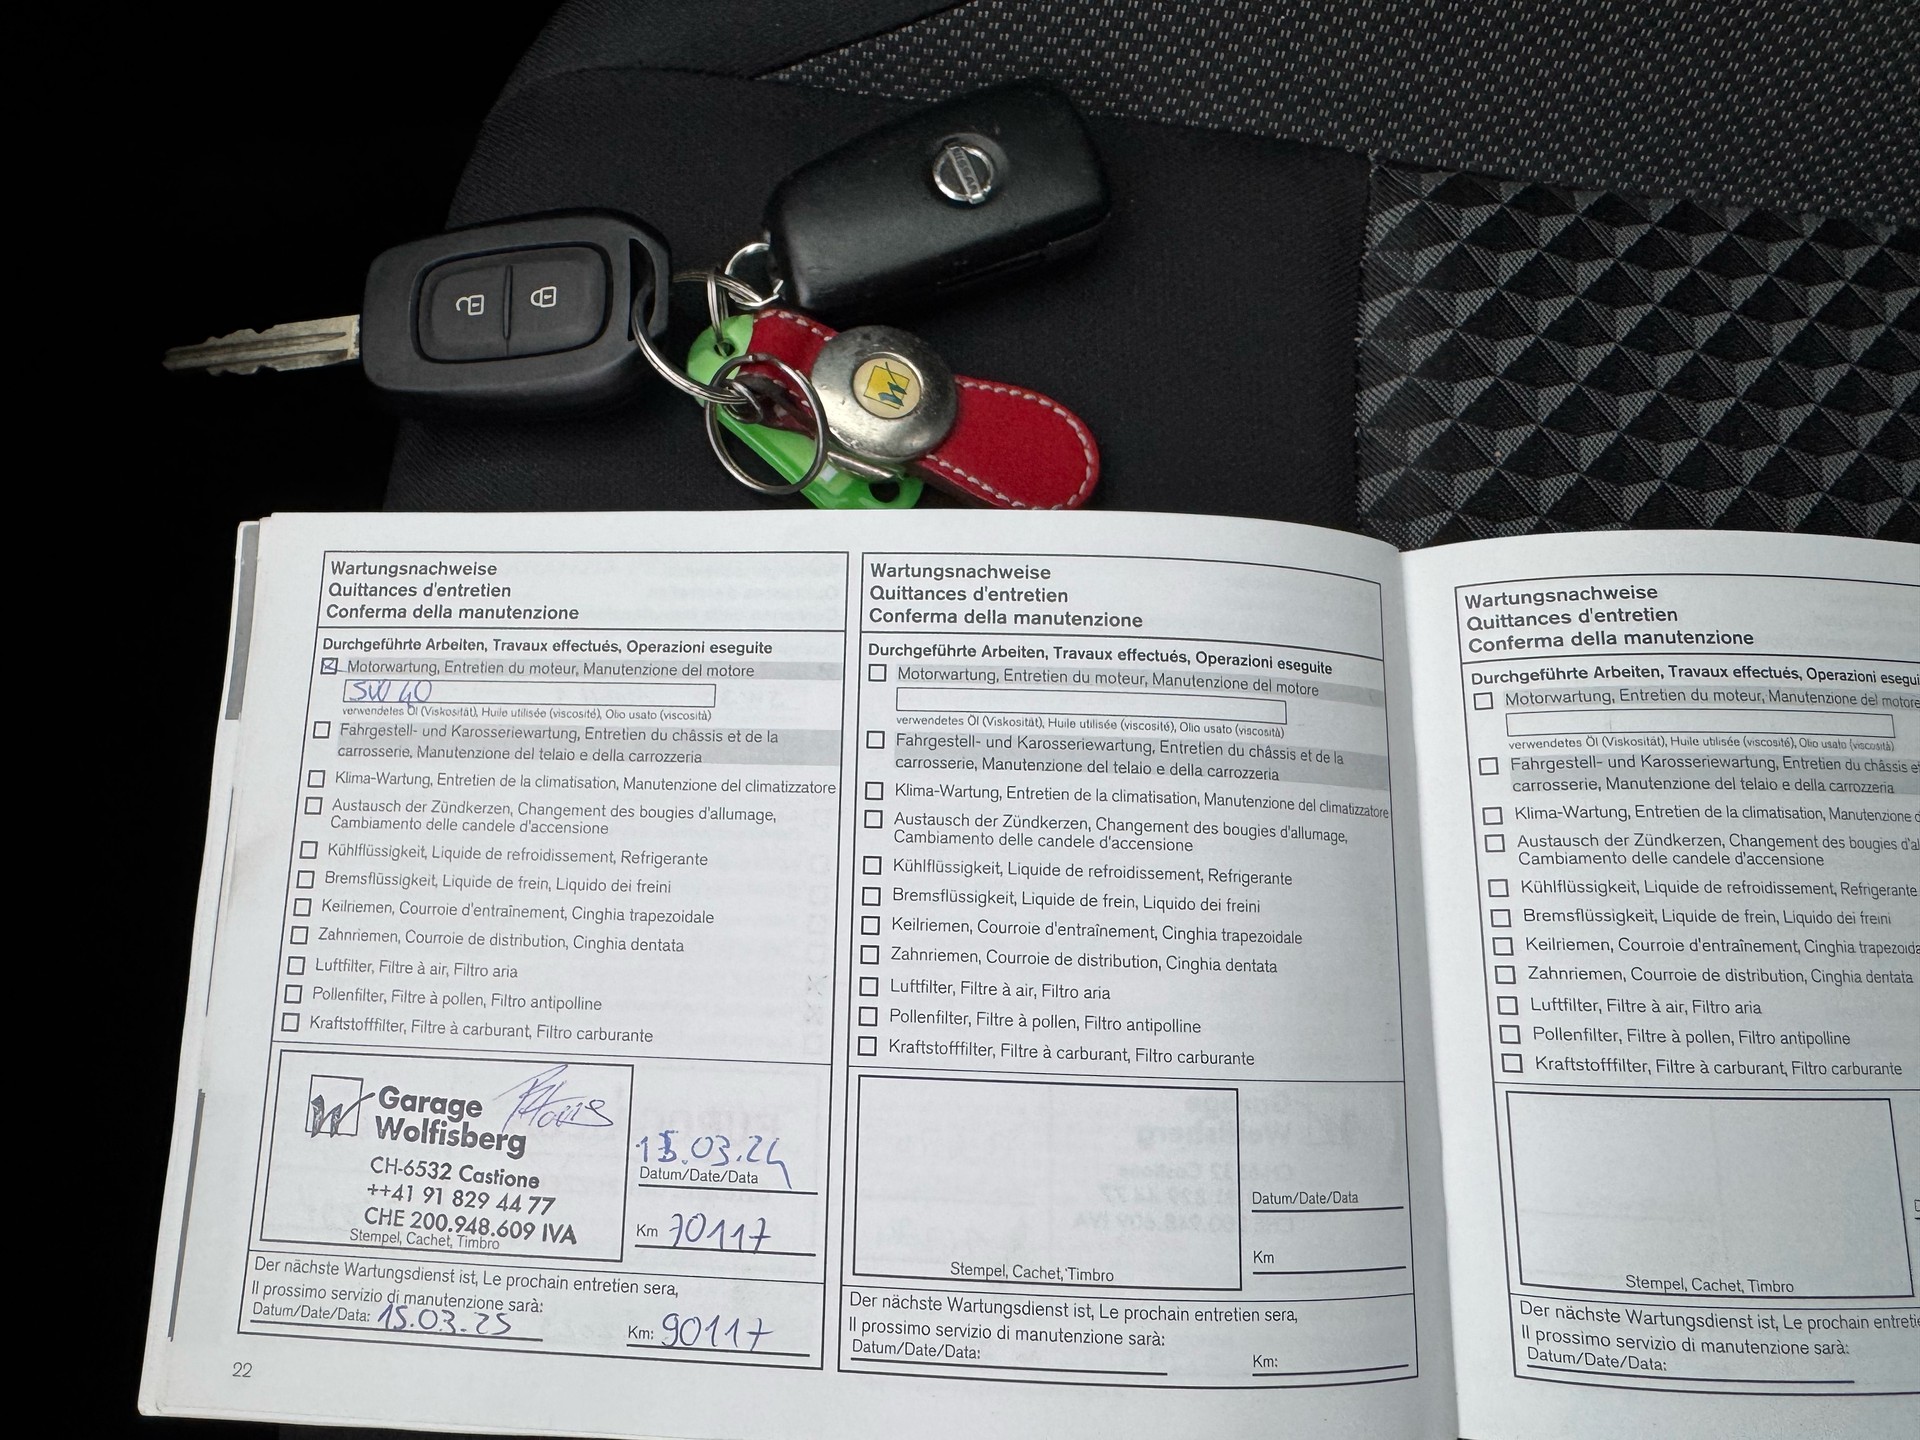 NISSAN
Wartungsnachweise
Quittances d'entretien
Conferma della manutenzione
Durchgeführte Arbeiten, Travaux effectués, Operazioni eseguite
Motorwartung, Entretien du moteur, Manutenzione del motore
5W40
verwendetes Öl (Viskosität), Huile utilisée (viscosité), Olio usato (viscosità)
Fahrgestell- und Karosseriewartung, Entretien du châssis et de la
carrosserie, Manutenzione del telaio e della carrozzeria
Klima-Wartung, Entretien de la climatisation, Manutenzione del climatizzatore
Austausch der Zündkerzen, Changement des bougies d'allumage,
Cambiamento delle candele d'accensione
Kühlflüssigkeit, Liquide de refroidissement, Refrigerante
Bremsflüssigkeit, Liquide de frein, Liquido dei freini
Keilriemen, Courroie d'entraînement, Cinghia trapezoidale
Zahnriemen, Courroie de distribution, Cinghia dentata
Luftfilter, Filtre à air, Filtro aria
Pollenfilter, Filtre à pollen, Filtro antipolline
Kraftstofffilter, Filtre à carburant, Filtro carburante
Garage
Wolfisberg
CH-6532 Castione
++41 91 829 44 77
CHE 200.948.609 IVA
Stempel, Cachet, Timbro
15.03.24
Datum/Date/Data
Km 70117
Der nächste Wartungsdienst ist, Le prochain entretien sera,
Il prossimo servizio di manutenzione sarà:
Datum/Date/Data: 15.03.25
Km: 90117
22
Wartungsnachweise
Quittances d'entretien
Conferma della manutenzione
Durchgeführte Arbeiten, Travaux effectués, Operazioni eseguite
Motorwartung, Entretien du moteur, Manutenzione del motore
verwendetes Öl (Viskosität), Huile utilisée (viscosité), Olio usato (viscosità)
Fahrgestell- und Karosseriewartung, Entretien du châssis et de la
carrosserie, Manutenzione del telaio e della carrozzeria
Klima-Wartung, Entretien de la climatisation, Manutenzione del climatizzatore
Austausch der Zündkerzen, Changement des bougies d'allumage,
Cambiamento delle candele d'accensione
Kühlflüssigkeit, Liquide de refroidissement, Refrigerante
Bremsflüssigkeit, Liquide de frein, Liquido dei freini
Keilriemen, Courroie d'entraînement, Cinghia trapezoidale
Zahnriemen, Courroie de distribution, Cinghia dentata
Luftfilter, Filtre à air, Filtro aria
Pollenfilter, Filtre à pollen, Filtro antipolline
Kraftstofffilter, Filtre à carburant, Filtro carburante
Stempel, Cachet, Timbro
Datum/Date/Data
Km
Der nächste Wartungsdienst ist, Le prochain entretien sera,
Il prossimo servizio di manutenzione sarà:
Datum/Date/Data:
Km:
Wartungsnachweise
Quittances d'entretien
Conferma della manutenzione
Durchgeführte Arbeiten, Travaux effectués, Operazioni esegui
Motorwartung, Entretien du moteur, Manutenzione del motore
verwendetes Öl (Viskosität), Huile utilisée (viscosité), Olio usato (viscosità)
Fahrgestell- und Karosseriewartung, Entretien du châssis et
carrosserie, Manutenzione del telaio e della carrozzeria
Klima-Wartung, Entretien de la climatisation, Manutenzione d
Austausch der Zündkerzen, Changement des bougies d'al
Cambiamento delle candele d'accensione
Kühlflüssigkeit, Liquide de refroidissement, Refrigerante
Bremsflüssigkeit, Liquide de frein, Liquido dei freini
Keilriemen, Courroie d'entraînement, Cinghia trapezoida
Zahnriemen, Courroie de distribution, Cinghia dentata
Luftfilter, Filtre à air, Filtro aria
Pollenfilter, Filtre à pollen, Filtro antipolline
Kraftstofffilter, Filtre à carburant, Filtro carburante
Stempel, Cachet, Timbro
Der nächste Wartungsdienst ist, Le prochain entreti
Il prossimo servizio di manutenzione sarà:
Datum/Date/Data: